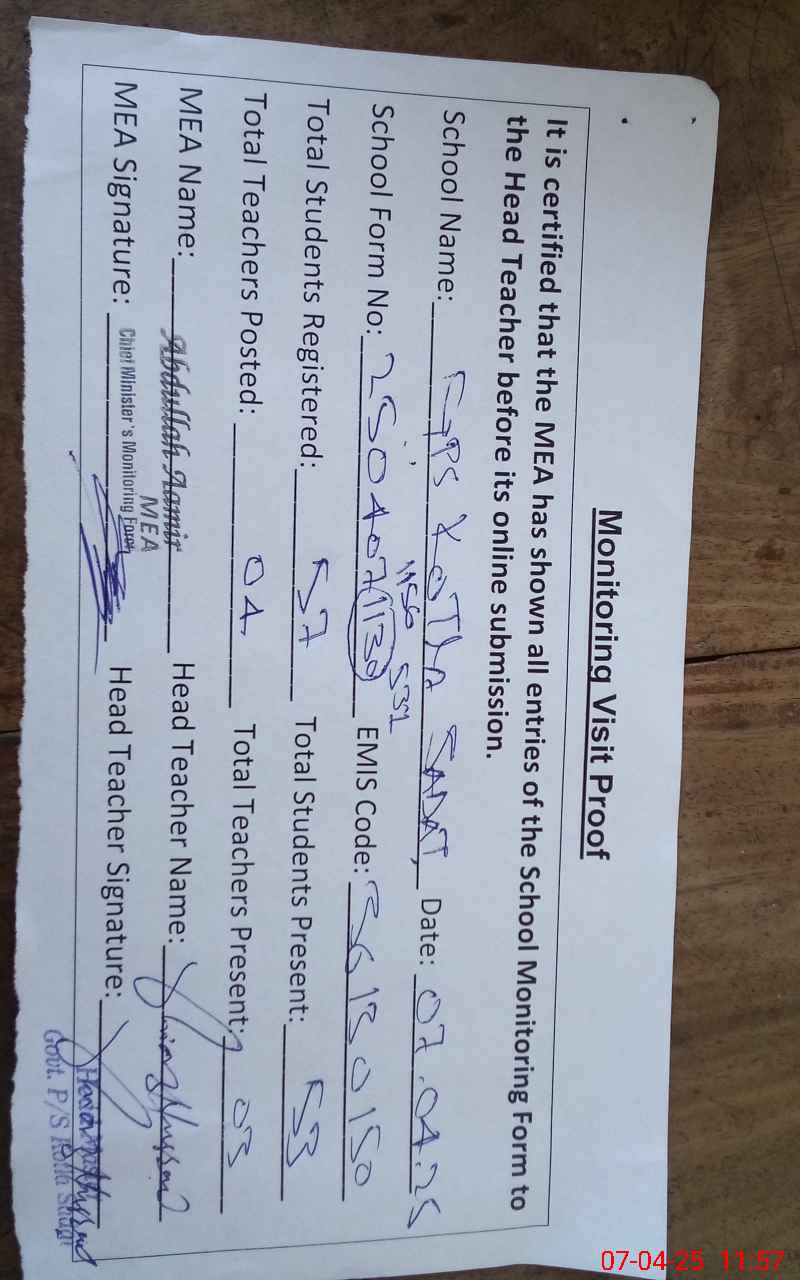 Monitoring Visit Proof
It is certified that the MEA has shown all entries of the School Monitoring Form to
the Head Teacher before its online submission.
School Name: GPS KOTLA SADAT, Date: 07.04.25
1156 5331
School Form No: 250407 1130 EMIS Code: 36130150
Total Students Registered: 57 Total Students Present: 53
Total Teachers Posted: 04 Total Teachers Present: 03
MEA Name: Abdullah Aamir Head Teacher Name:
MEA
Chief Minister's Monitoring Force
MEA Signature: Head Teacher Signature:
Govt. P/S Kotla
07-04-25 11:57